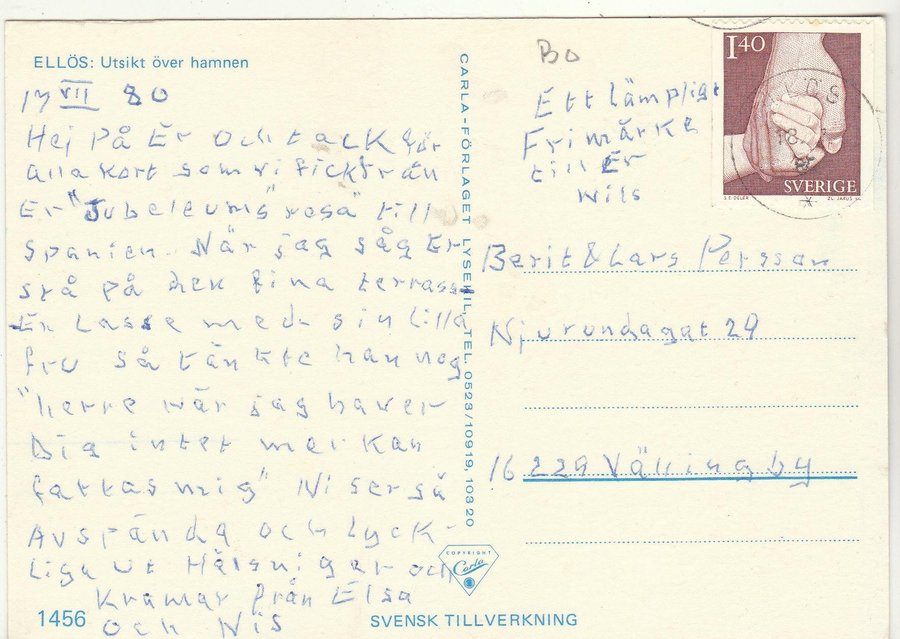 ELLÖS: Utsikt över hamnen
17 VII 80
Hej På Er och tack för
alla kort som vi fick från
Er "Jubeleums resa" till
Spanien. När jag såg Er
stå på den fina terrass
En Lasse med sin lilla
fru så tänkte han nog
"herre när jag haver
Dig intet mer kan
fattas mig" Ni ser så
Avspända och lyck-
liga ut Hälsniger och
Kramar från Elsa
och Nis
1456
CARLA-FÖRLAGET LYSEKIL, TEL. 0523/10919, 10320
COPYRIGHT
Carla
SVENSK TILLVERKNING
Bo
Ett lämpligt
Frimärke
till Er
Nils
1.40
SVERIGE
S.E. OELER
ZL. JAKUS SC
18.
Berit & Lars Persson
Njurundagat 29
16229 Vällingby